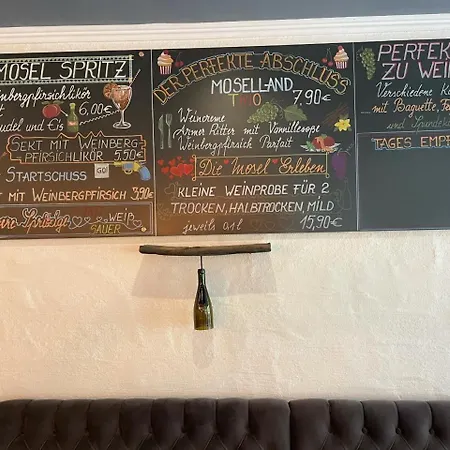 MOSEL SPRITZ
Weinbergpfirsichlikör
6,00€
und Eis
SEKT MIT WEINBERG
PFIRSICHLIKÖR 5,50€
STARTSCHUSS GO!
MIT WEINBERGPFIRSICH 3,90
WEIß
SAUER
DER PERFEKTE ABSCHLUSS
MOSELLAND
TRIO 7,90€
Weincreme
Armer Ritter mit Vanillesoße
Weinbergpfirsich Parfait
Die Mosel Erleben
KLEINE WEINPROBE FÜR 2
TROCKEN, HALBTROCKEN, MILD
jeweils 0,1l 15,90€
PERFEKT
ZU WEIN
Verschiedene
mit Baguette,
und
TAGES